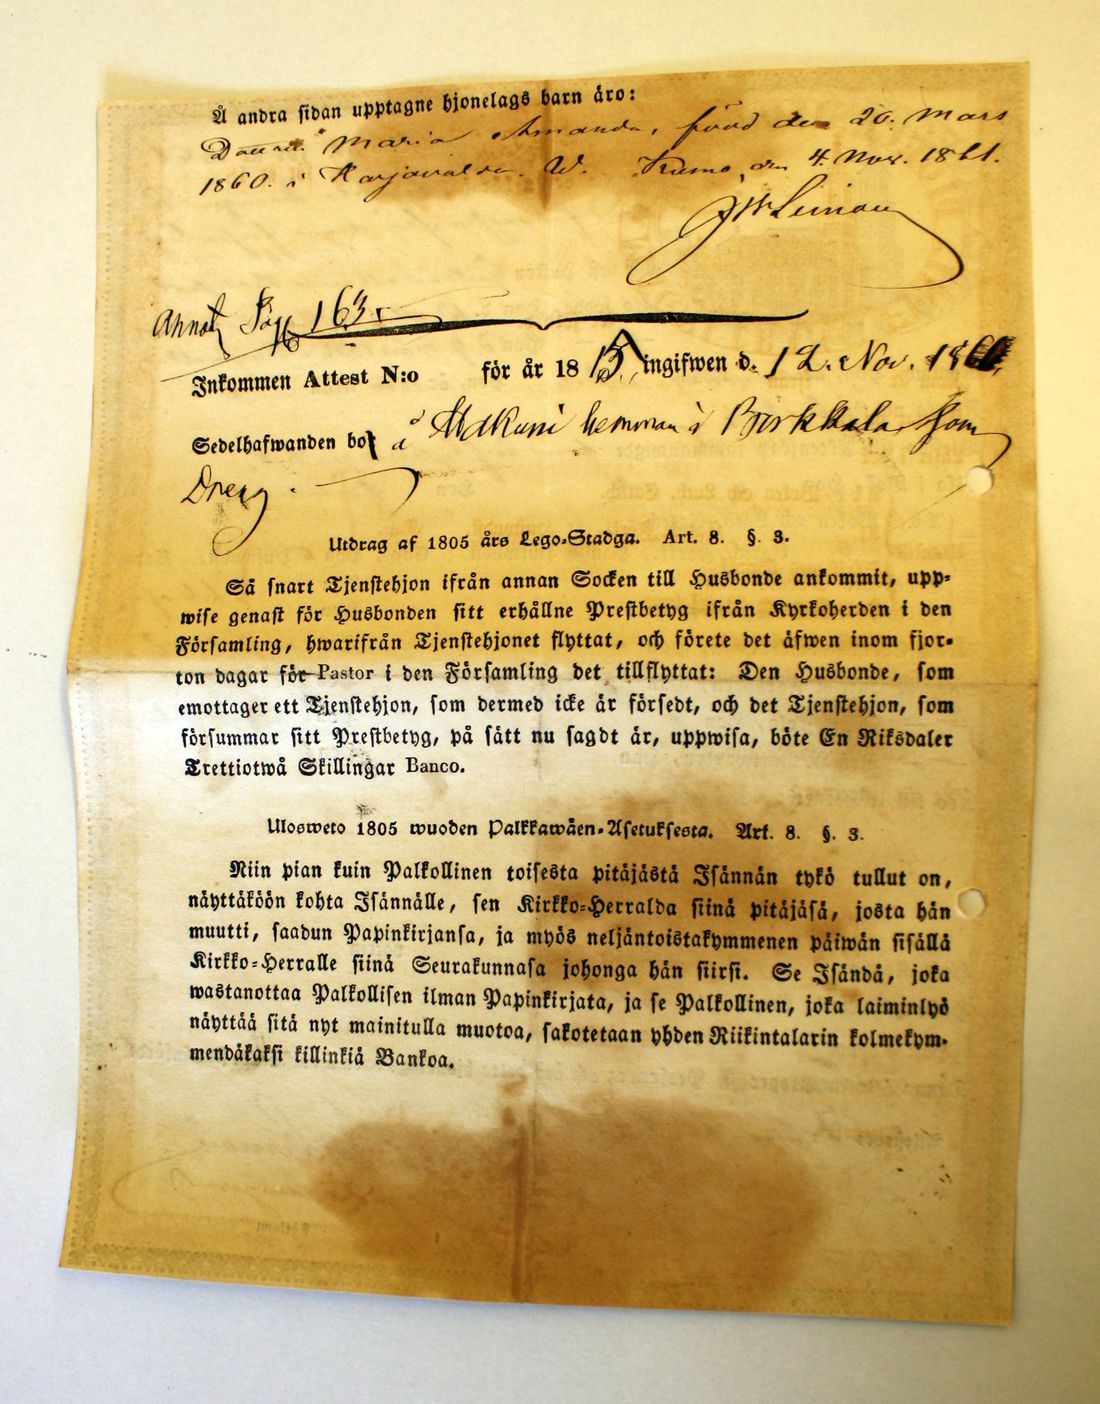 Å andra sidan upptagne hjonelags barn äro:
Dottren Maria Amanda, född den 20. Mars
1860. i Harjavalda. W. Kumo, den 4. Nov. 1861.
Annot. Pag 163.
Inkommen Attest N:o för år 18 ingifwen d. 12. Nov. 186
Sedelhafwanden bor å hemman i som
Dreng.
Utdrag af 1805 års Lego-Stadga. Art. 8. §. 3.
Så snart Tjenstehjon ifrån annan Socken till Husbonde ankommit, upp-
wise genast för Husbonden sitt erhållne Prestbetyg ifrån Kyrkoherden i den
Församling, hwarifrån Tjenstehjonet flyttat, och förete det äfwen inom fjor-
ton dagar för Pastor i den Församling det tillflyttat: Den Husbonde, som
emottager ett Tjenstehjon, som dermed icke är försedt, och det Tjenstehjon, som
försummar sitt Prestbetyg, på sätt nu sagdt är, uppwisa, böte En Riksdaler
Trettiotwå Skillingar Banco.
Ulosweto 1805 wuoden Palkkawäen-Asetuksesta. Art. 8. §. 3.
Niin pian kuin Palkollinen toisesta pitäjästä Isännän tykö tullut on,
näyttäköön kohta Isännälle, sen Kirkko-Herralda siinä pitäjäsä, josta hän
muutti, saadun Papinkirjansa, ja myös neljäntoistakymmenen päiwän sisällä
Kirkko-Herralle siinä Seurakunnasa johonga hän siirsi. Se Isändä, joka
wastanottaa Palkollisen ilman Papinkirjata, ja se Palkollinen, joka laiminlyö
näyttää sitä nyt mainitulla muotoa, sakotetaan yhden Riikintalarin kolmekym-
mendäkaksi killinkiä Bankoa.